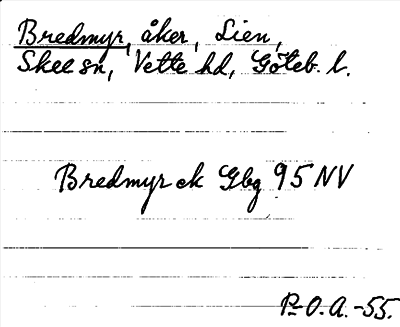 Bredmyr, åker, Lien,
Skee sn, Vette hd, Göteb. l.
Bredmyr ek Gbg 95 NV
P-O.A.-55.